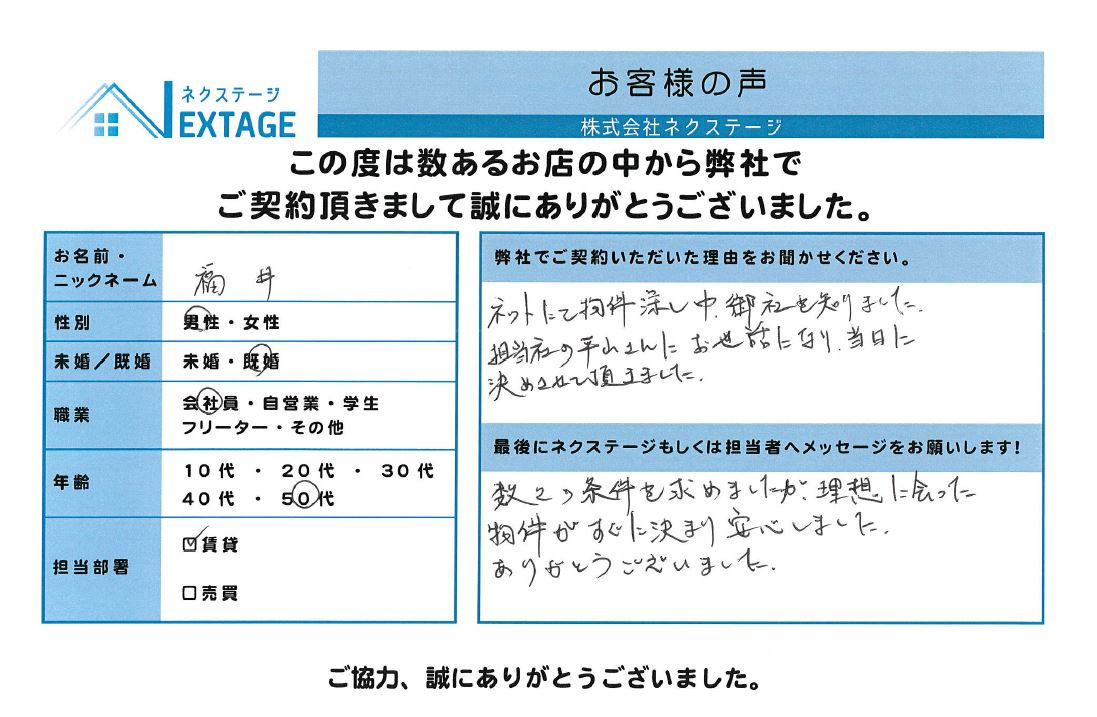 ネクステージ
NEXTAGE
お客様の声
株式会社ネクステージ
この度は数あるお店の中から弊社で
ご契約頂きまして誠にありがとうございました。
お名前・
ニックネーム
福井
性別
男性・女性
未婚／既婚
未婚・既婚
職業
会社員・自営業・学生
フリーター・その他
年齢
10代 ・ 20代 ・ 30代
40代 ・ 50代
担当部署
☑賃貸
□売買
弊社でご契約いただいた理由をお聞かせください。
ネットにて物件深し中、御社を知りました。
担当社の平山さんにお世話になり、当日に
決めさせて頂きました。
最後にネクステージもしくは担当者へメッセージをお願いします!
数々の条件を求めましたが、理想に会った
物件がすぐに決まり安心しました。
ありがとうございました。
ご協力、誠にありがとうございました。